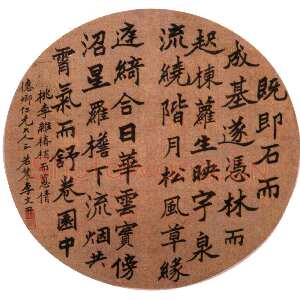 既即石而
成基遂憑林而
起棟蘿生映宇泉
流繞階月松風草緣
庭綺合日華雲實傍
沼星羅檐下流烟共
霄氣而舒卷園中
桃李雜椿而蔥蒨
卿仁兄大人正 若農李文田